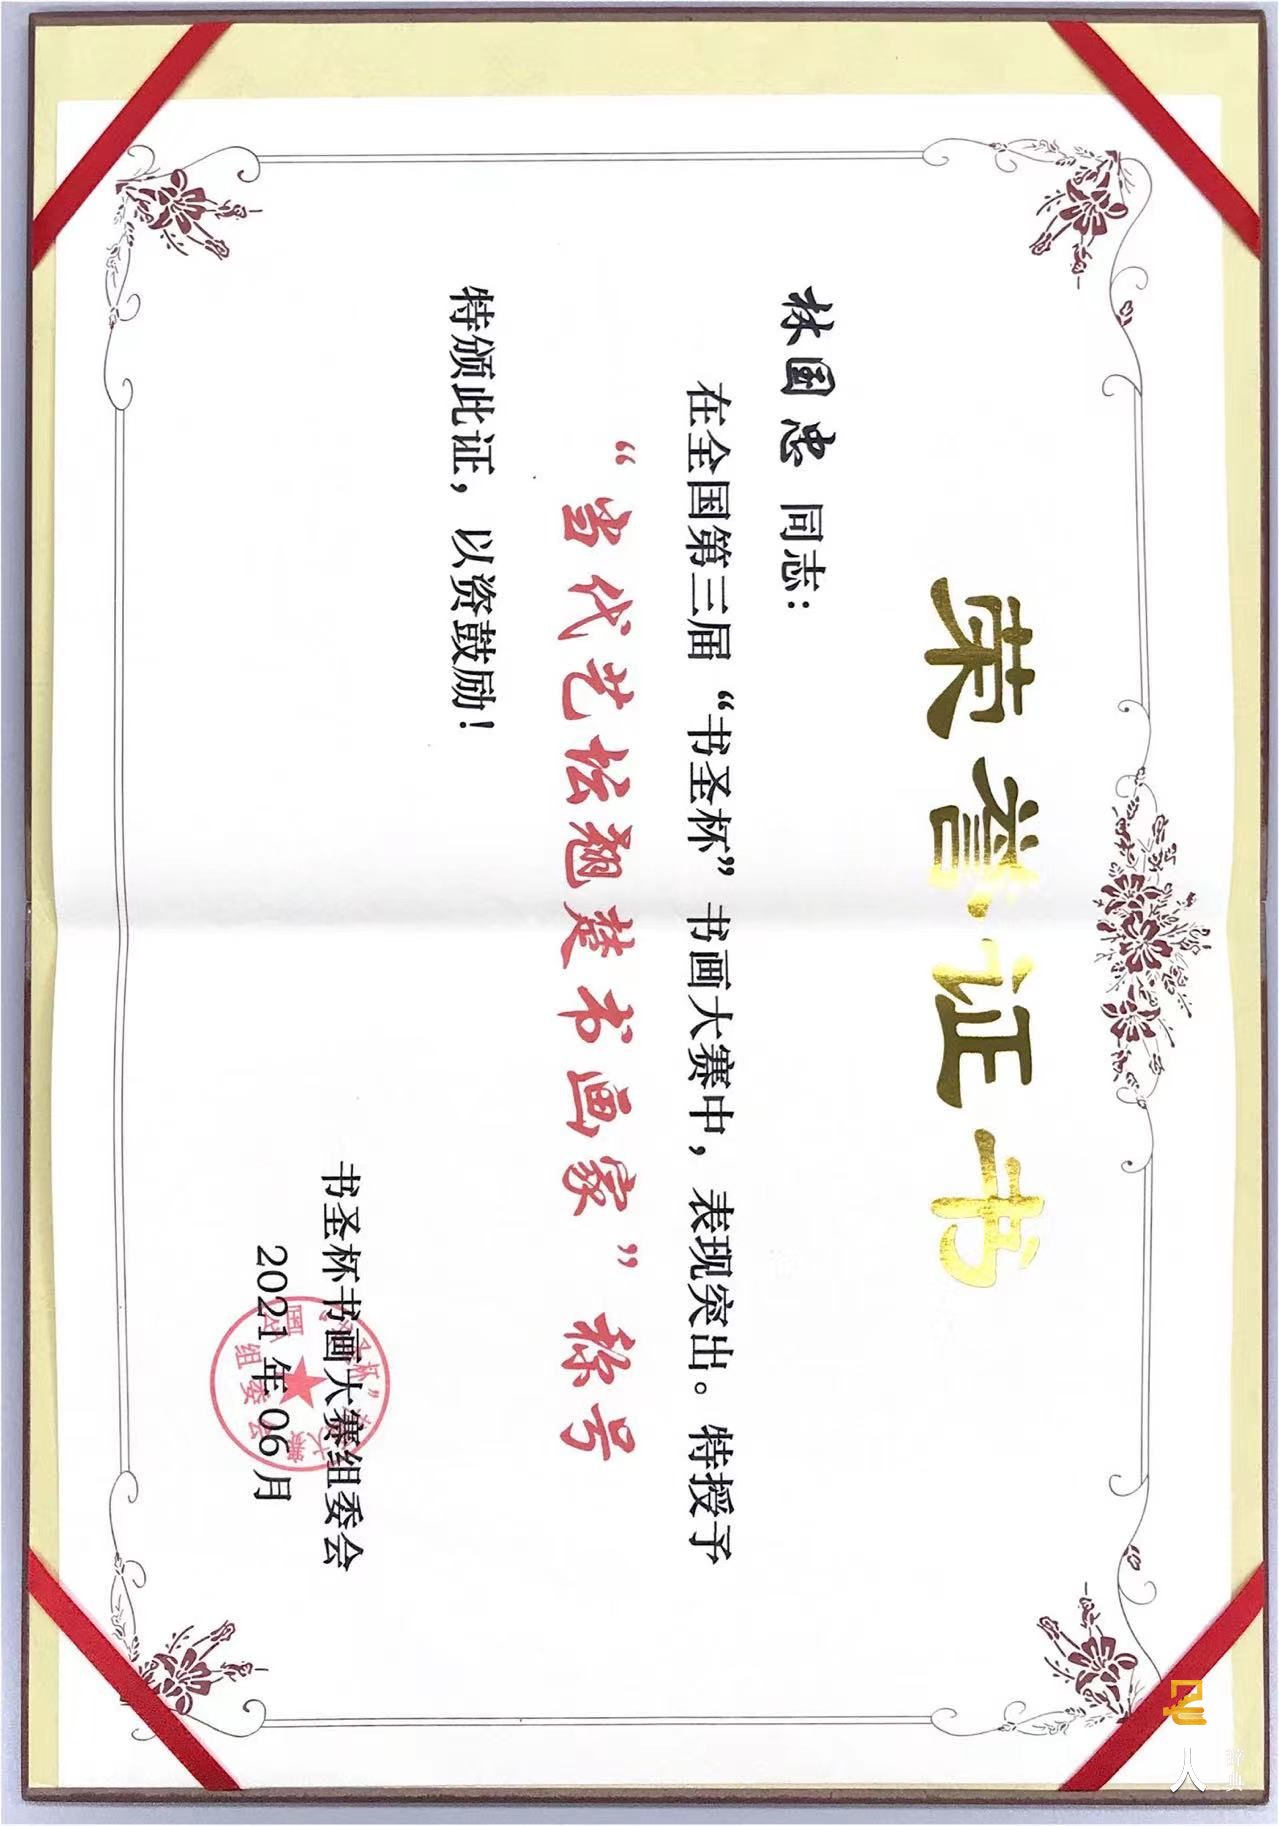 荣誉证书
林国忠 同志：
在全国第三届“书圣杯”书画大赛中，表现突出。特授予
“当代艺坛翘楚书画家”称号
特颁此证，以资鼓励！
书圣杯书画大赛组委会
2021年06月
组委会
名人
辞典